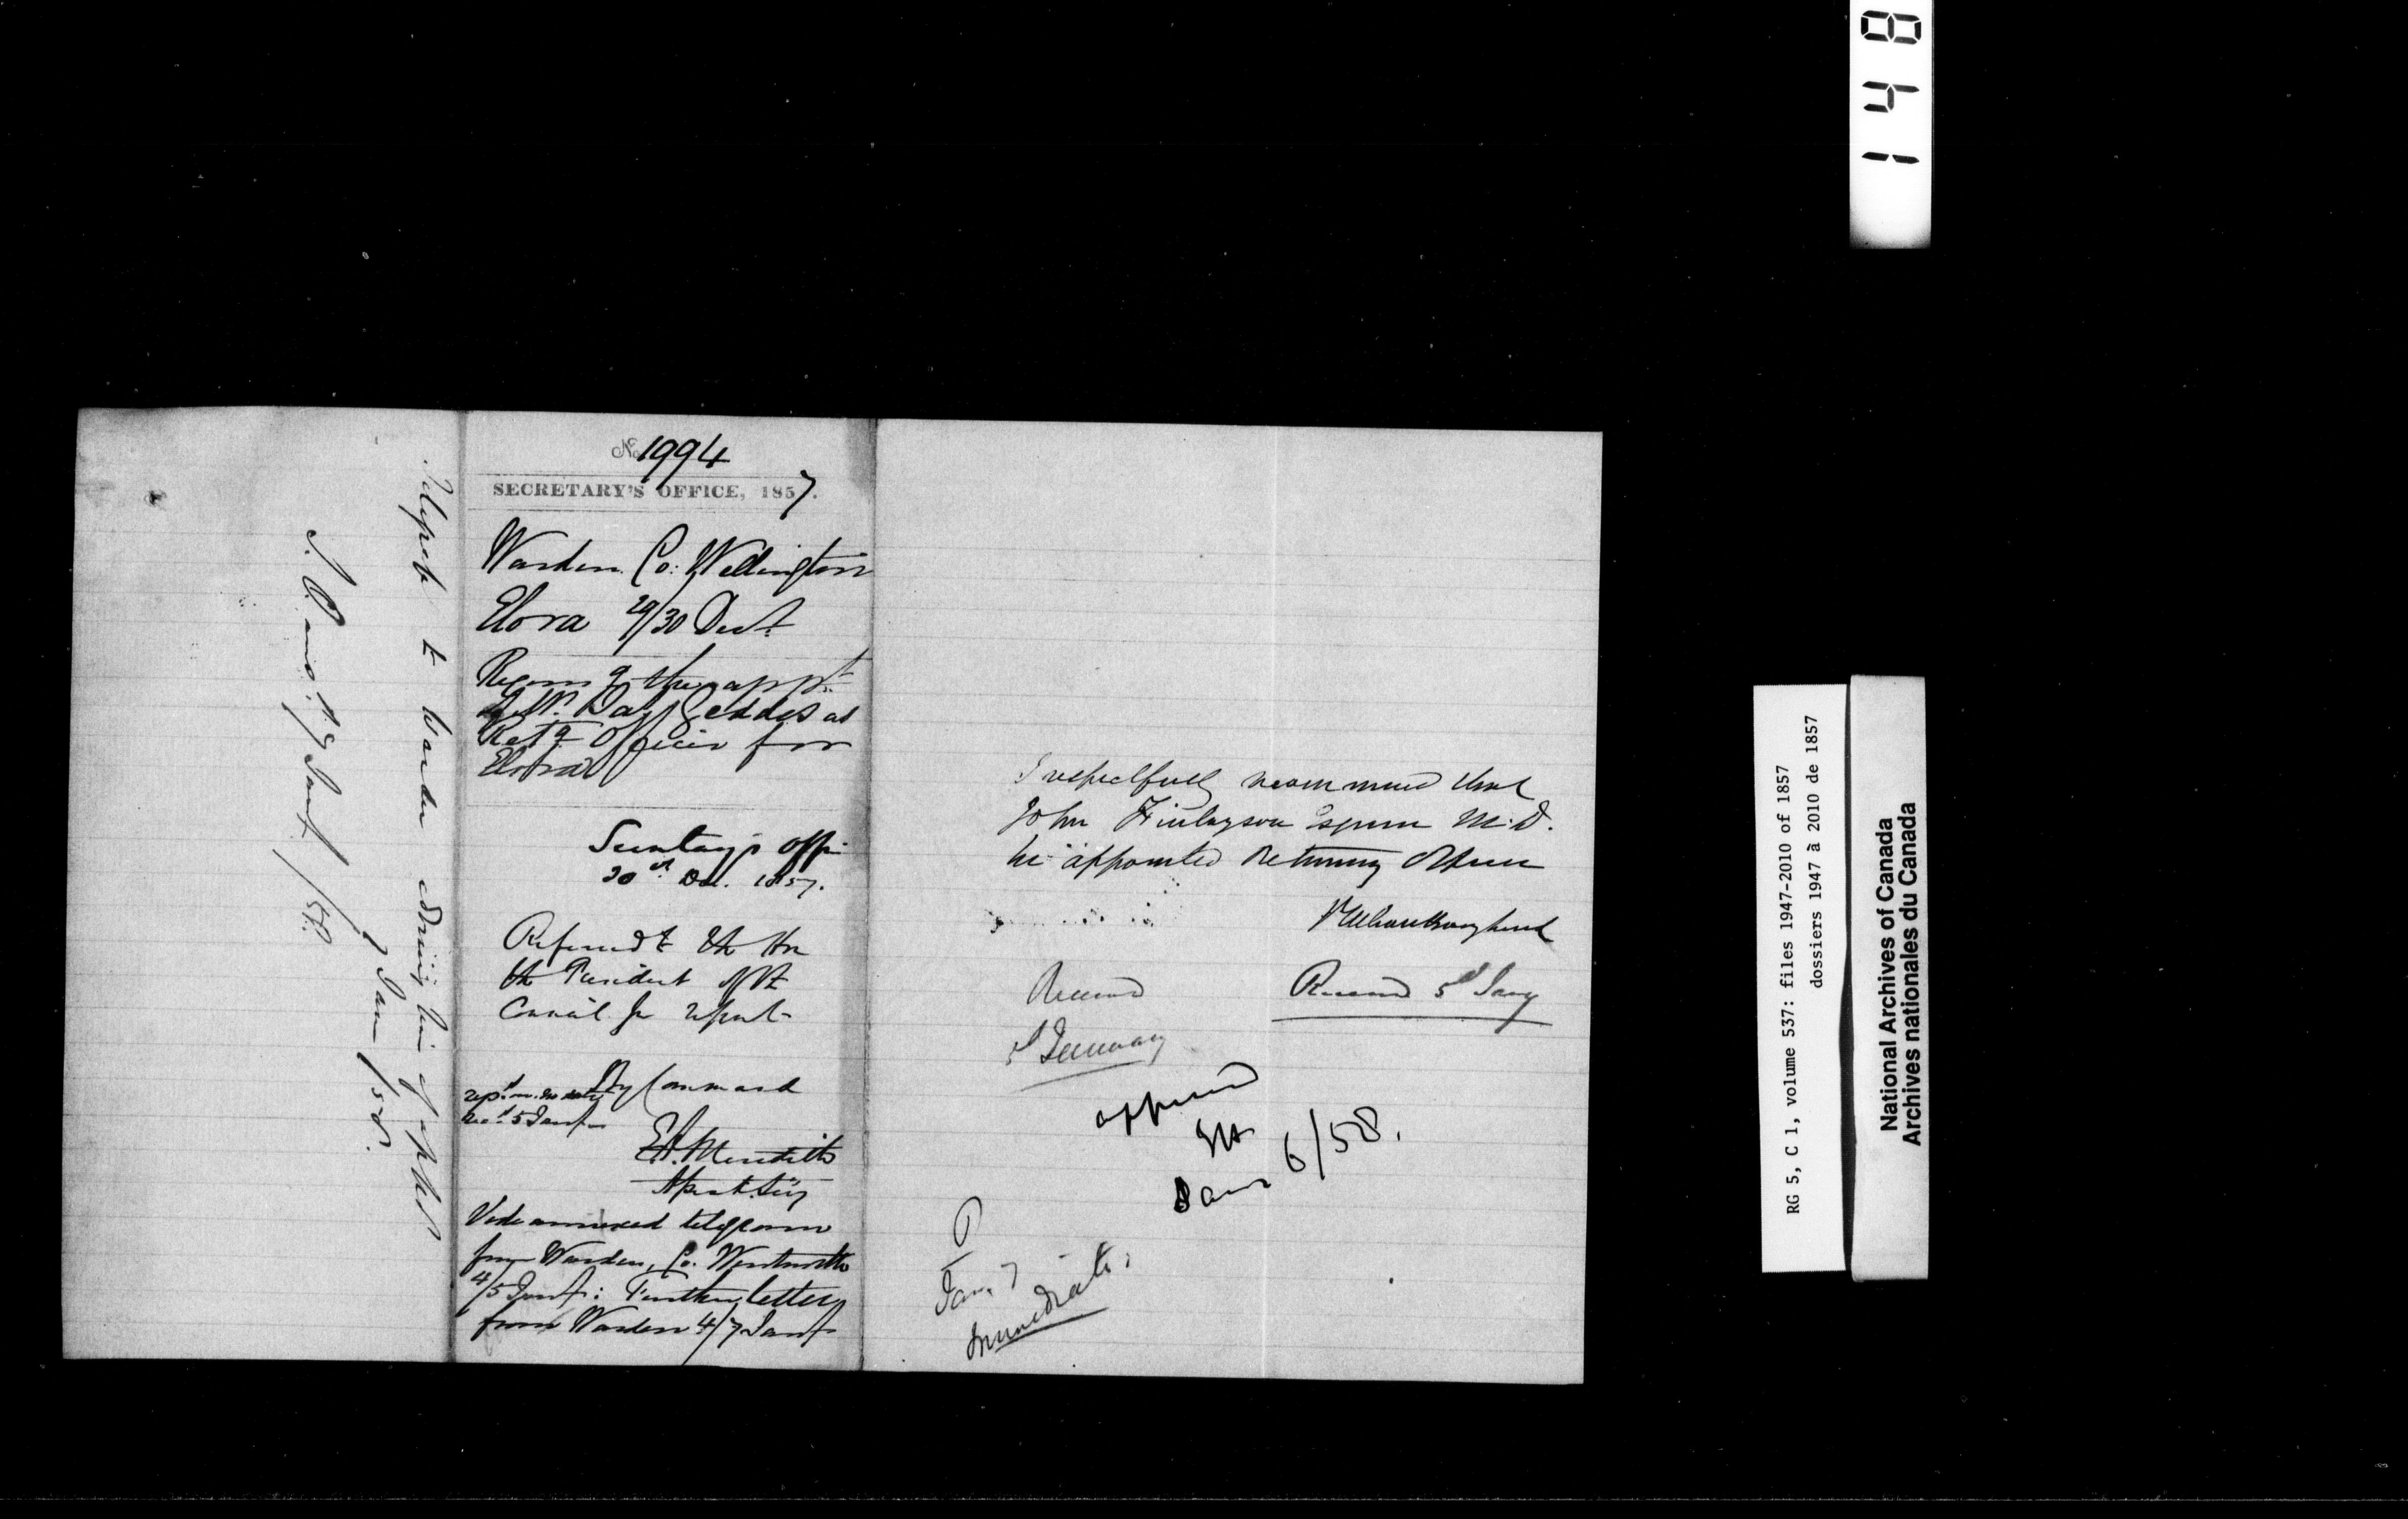 1 4 8
No. 1994
SECRETARY'S OFFICE, 1857.
Warden Co: Wellington
Elora 29/30 Dect.
Recomg the appt
of Mr. Geddes as
Retg Officer for
Elora
Secretary's Offi
30th Dec. 1857.
Referred to the Hon
the President of the
Council for report
By Command
recd 5 Jany
E.A. Meredith
Asst. Secy
Vide annexed telegram
from Warden, Co. Wentworth
4/5 Jany: Further letter
from Warden 4/7 Jany
Telegraph to Warden advising him of appt
7 Jany /58.
7 Jany /58.
I respectfully recommend that
John Finlayson Esquire M.D.
be appointed Returning Officer
Received
5th January
Received 5th Jany
approved
Jany 6/58.
Jan. 7
Immediate.
RG 5, C 1, volume 537: files 1947-2010 of 1857
dossiers 1947 à 2010 de 1857
National Archives of Canada
Archives nationales du Canada